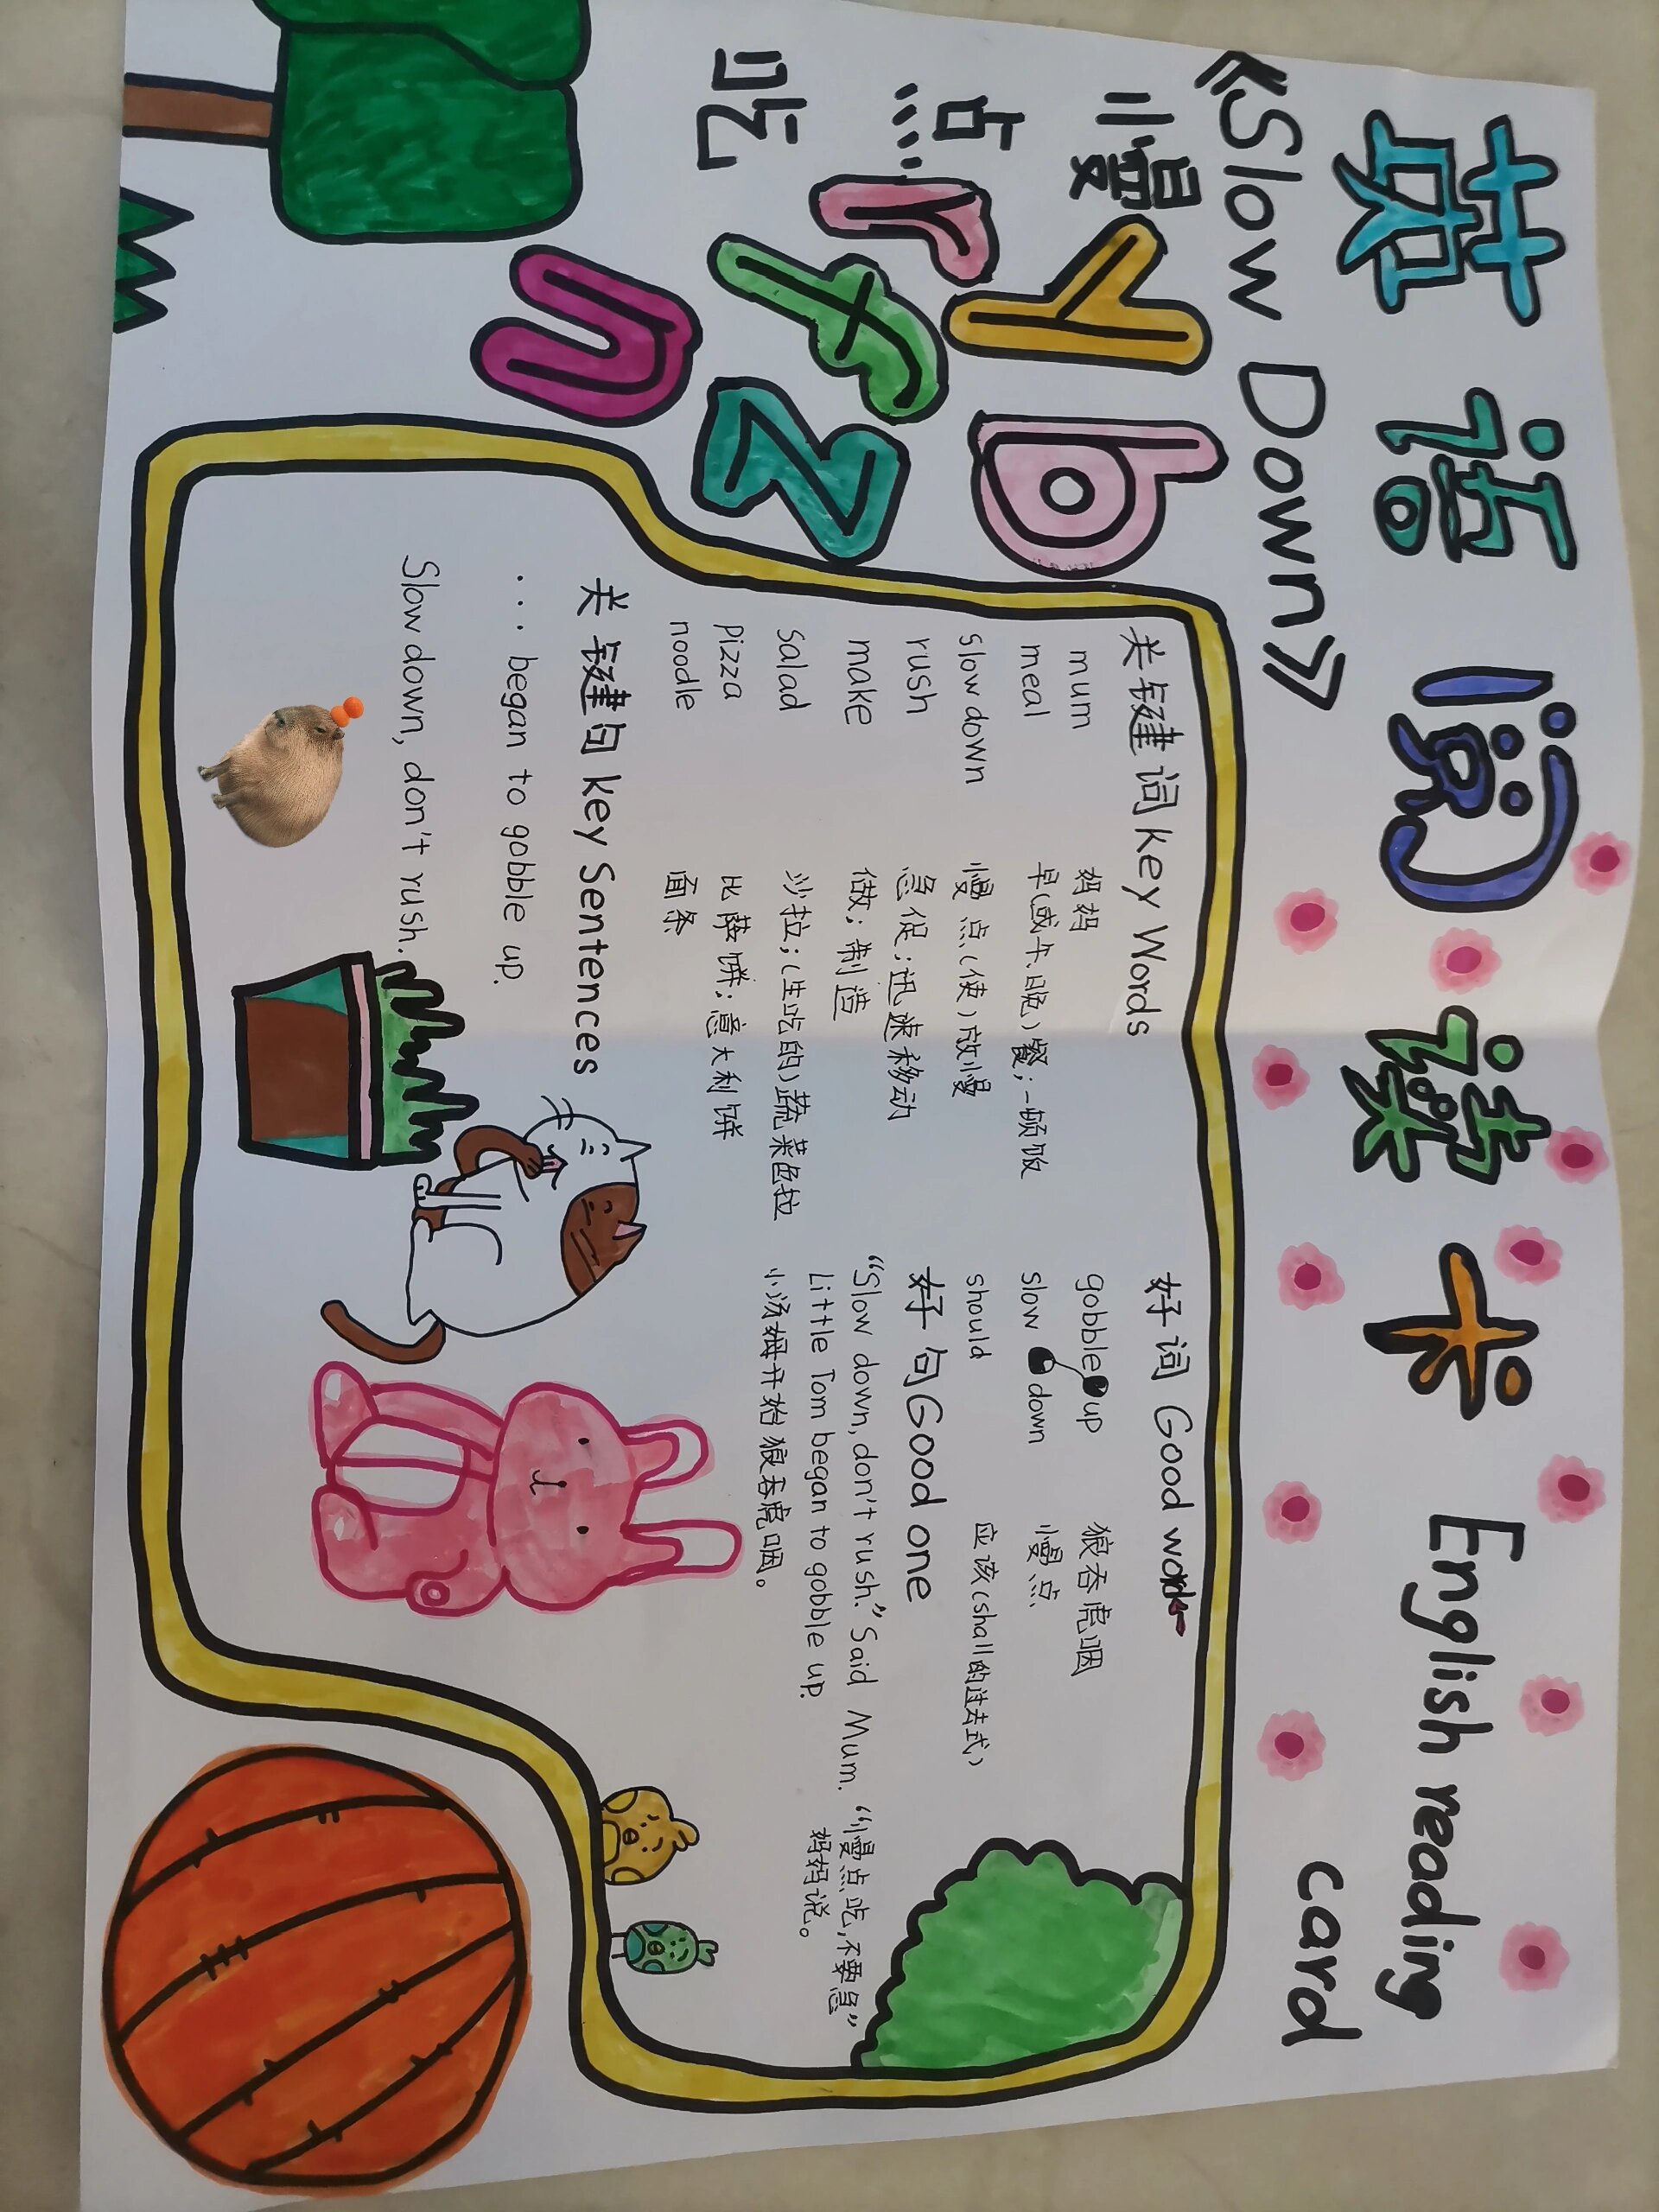 英语阅读卡 English reading card
《Slow Down》
慢点吃
Y b
r f z
n
关键词 key Words
mum 妈妈
meal 早(或午、晚)餐；一顿饭
slow down 慢点(使)放慢
rush 急促；迅速移动
make 做；制造
salad 沙拉；(生吃的)蔬菜色拉
pizza 比萨饼；意大利饼
noodle 面条
关键句 key Sentences
... began to gobble up.
Slow down, don't rush.
好词 Good words
gobble up 狼吞虎咽
slow down 慢点
should 应该(shall的过去式)
好句 Good one
“Slow down, don't rush.” Said Mum. “慢点吃,不要急”
妈妈说。
Little Tom began to gobble up.
小汤姆开始狼吞虎咽。